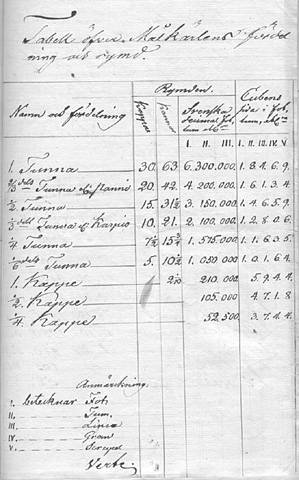 Tabell öfver Målkärlens fördel
ning och rymd.
Rymden. Cubens
Namn och fördelning Kappar Kannor Svenska decimal fot tum etc sida i fot, tum, etc
I. II. III. I. II. III. IV. V
1. Tunna 30. 63 6.300.000. 1. 8. 4. 6. 9.
2/3 dels Tunna 20. 42 4.200.000. 1. 6. 1. 3. 4
1/2 Tunna 15. 31 1/2 3.150.000 1. 4. 6. 5. 9.
1/3 dels Tunna 10. 21 2.100.000 1. 2. 8. 0. 6.
1/4 Tunna 7 1/2 15 3/4 1.575.000 1. 1. 6. 3. 5.
1/6 dels Tunna 5. 10 1/2 1.050.000 1. 0. 1. 6. 4
1. Kappe 2 1/10 210.000 5. 9. 4. 4
1/2. Kappe 105.000 4. 7. 1. 8
1/4. Kappe 52.500 3. 7. 4. 4
Anmärckning.
I. betecknar Fot
II. Tum.
III. Linea
IV. Gran
V. Scrupel
Verte.